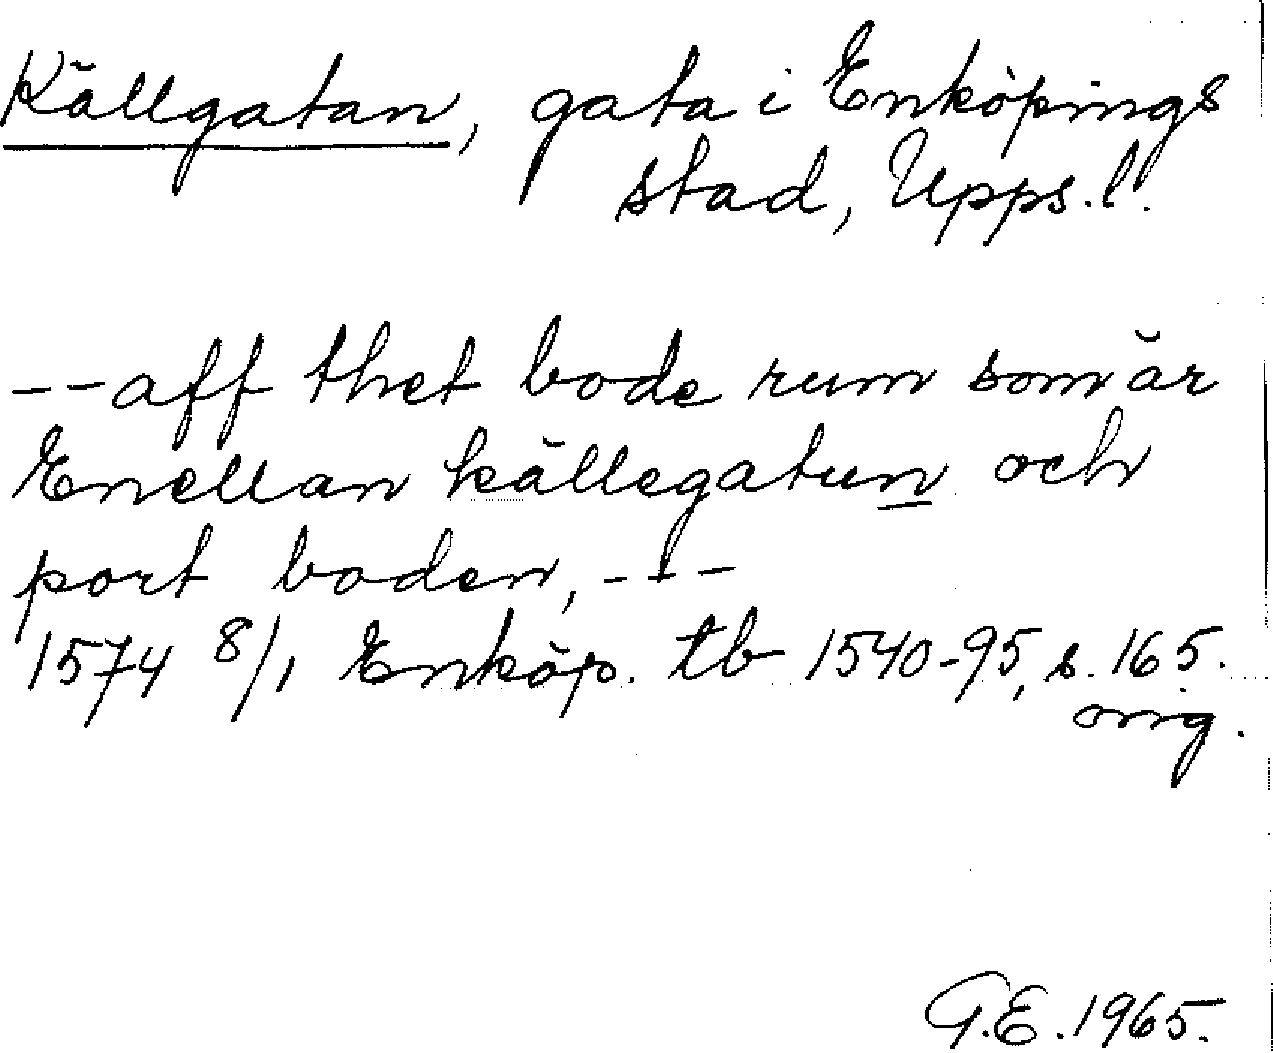 Källgatan, gata i Enköpings
stad, Upps. l.
--aff thet bode rum som är
Enellan källegatun och
port boden, ---
1574 8/1 Enköp. tb 1540-95, s. 165.
orig.
G.E. 1965.